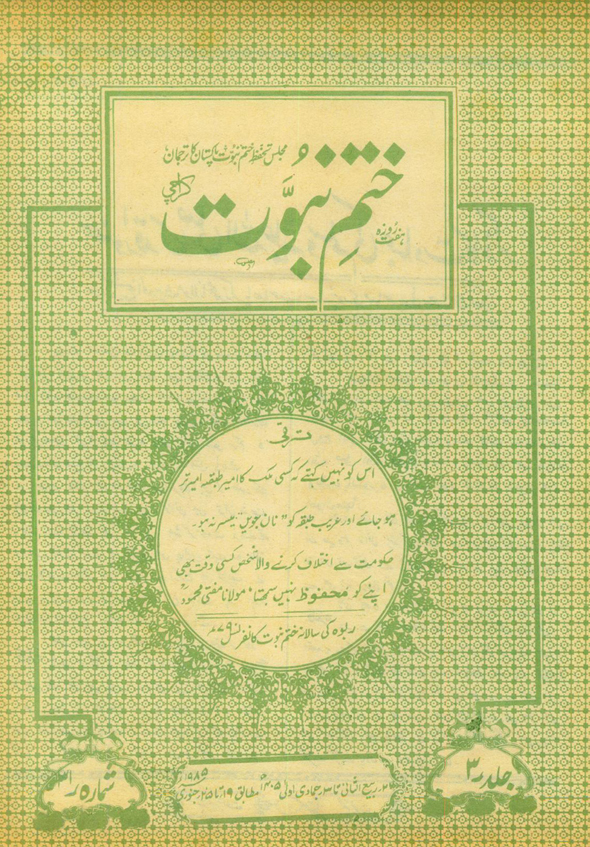 مجلس تحفظ ختم نبوت پاکستان کا ترجمان
ہفت روزہ
ختمِ نبوّت
کراچی
ترقی
اس کو نہیں کہتے کہ کسی ملک کا امیر طبقہ امیر تر
ہو جائے اور غریب طبقہ کو "نانِ جویں" میسر نہ ہو۔
حکومت سے اختلاف کرنے والا شخص کسی وقت بھی
اپنے کو محفوظ نہیں سمجھتا، مولانا مفتی محمودؒ
ربوہ کی سالانہ ختم نبوت کانفرنس ۷۹ء
جلد ۳
۲۷ ربیع الثانی تا ۳ جمادی اولی ۱۴۰۵ھ مطابق ۱۹ تا ۲۵ جنوری ۱۹۸۵ء
شمارہ ۳۱